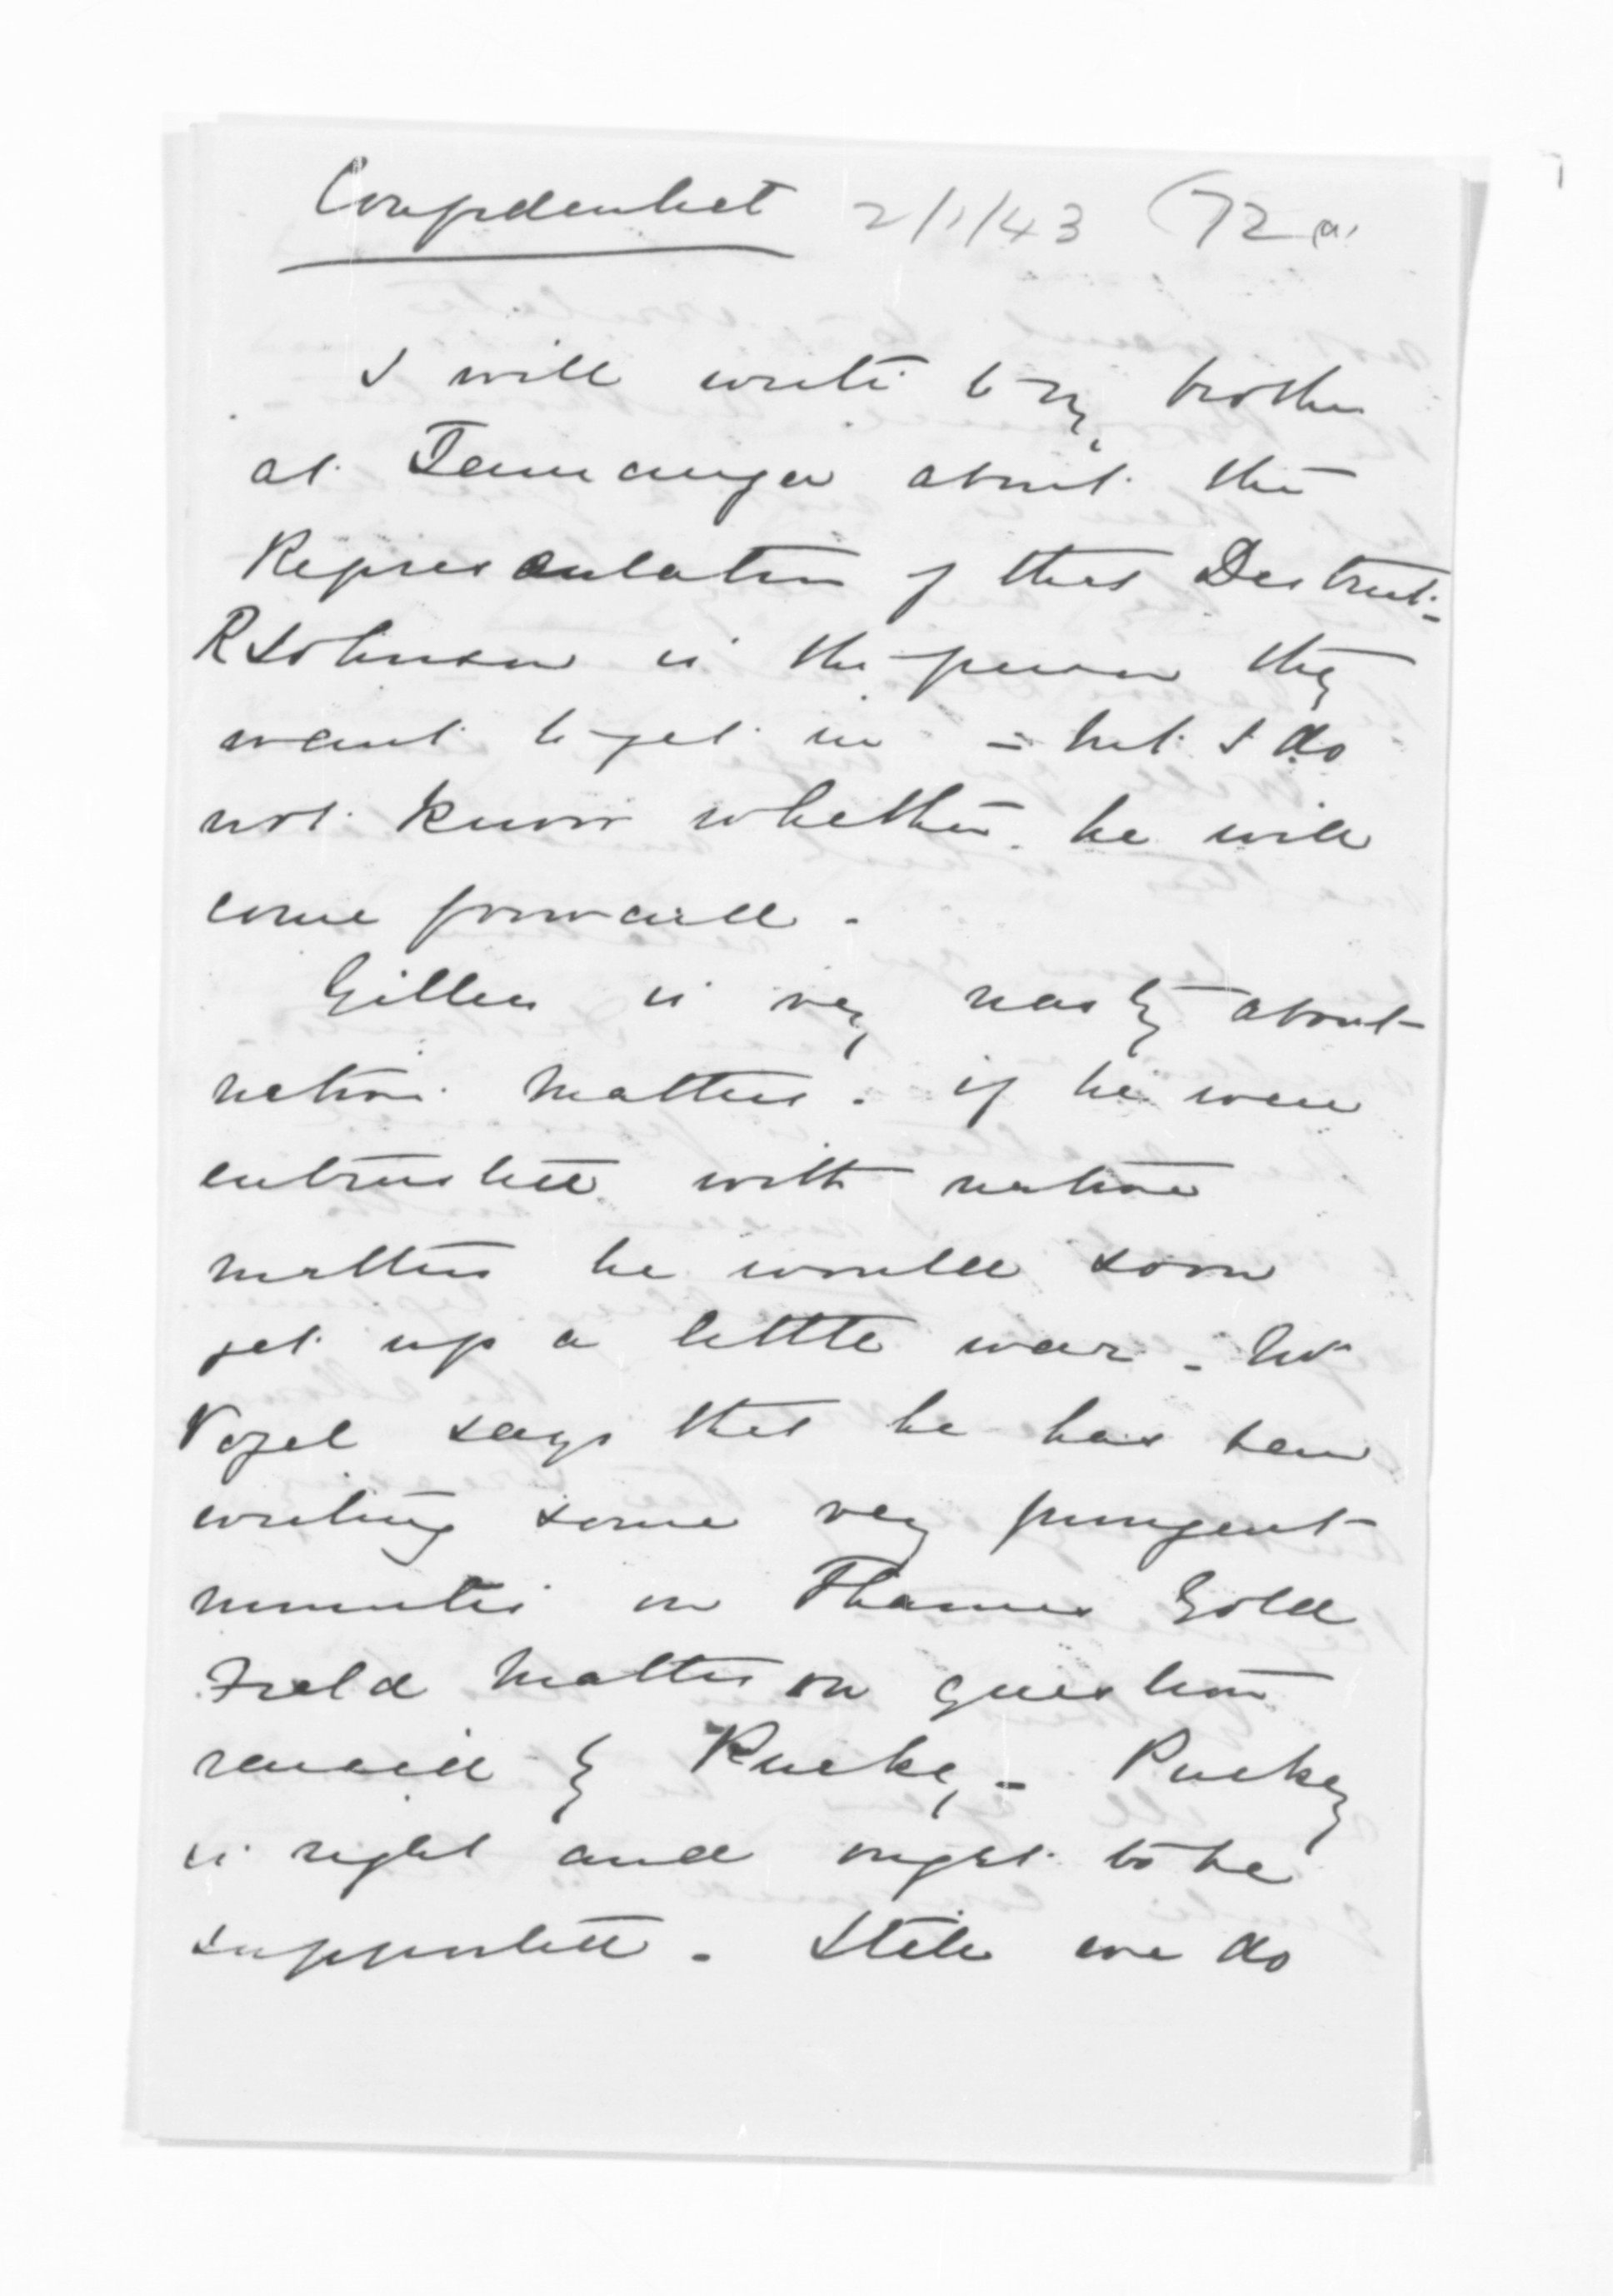 Confidential 2/1/43 (72a.
I will write to my brother
at Tauranga about the
Representation of that District -
R Johnson is the person they
want to get in - but I do
not know whether he will
come forward.
Gillies is very nasty about
native matters. if he were
entrusted with native
matters he would soon
get up a little war - Mr
Vogel says that he has been
writing some very pungent
minutes on Thames Gold
Field Matters on questions
raised by Puckey - Puckey
is right and ought to be
supported - Still we do